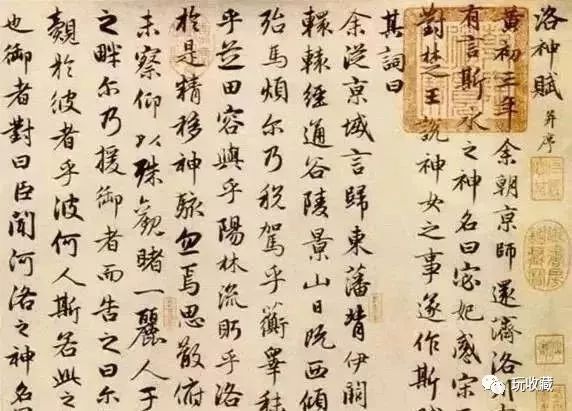 洛神賦 并序
黄初三年余朝京師還濟洛川
有言斯水之神名曰宓妃感宋
對楚王說神女之事遂作斯
其詞曰
余從京域言歸東藩背伊闕
轘轅經通谷陵景山日既西傾
殆馬煩尔乃稅駕乎蘅皋秣
乎芝田容與乎陽林流眄乎洛
於是精移神駭忽焉思散俯
未察仰以殊觀睹一麗人于
之畔尔乃援御者而告之曰尔
覿於彼者乎彼何人斯若此之
也御者對曰臣聞河洛之神名
玩收藏